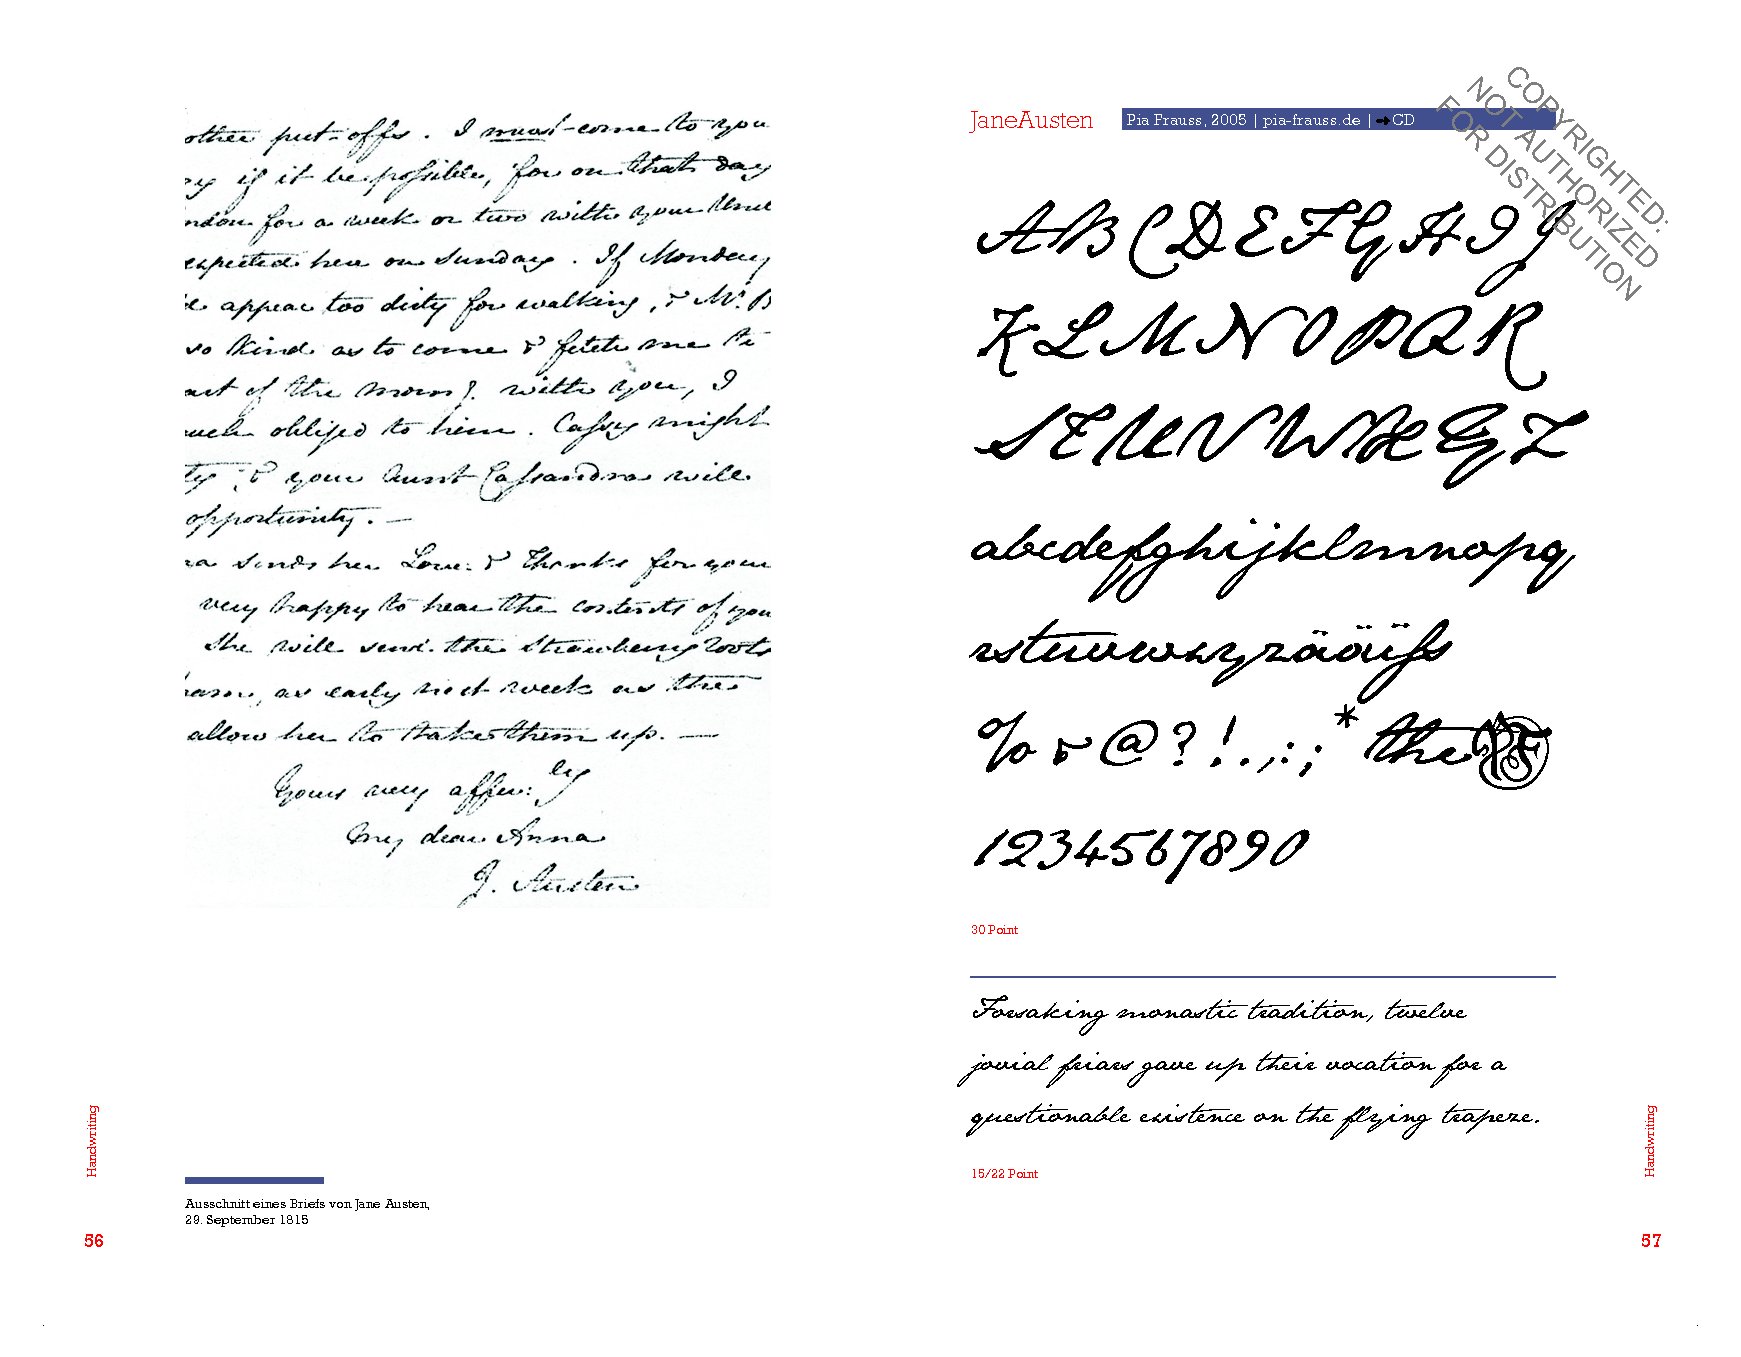 other put-offs. I must come to you
if it be possible, for on that day
ndon for a week or two with your Unc
expected here on Sunday. If Monday
appear too dirty for walking, & Mr. B
so kind as to come & fetch me to
art of the morng. with you, I
uch obliged to him. Cassy might
ty; & your Aunt Cassandra will
opportunity. —
na sends her Love & Thanks for your
very happy to hear the contents of you
She will send the Strawberry roots
as early next week as the
allow her to take them up. —
Yours very affec:ly
My dear Anna
J. Austen
Handwriting
Ausschnitt eines Briefs von Jane Austen,
29. September 1815
56
JaneAusten
Pia Frauss, 2005 | pia-frauss.de | ➔CD
COPYRIGHTED:
NOT AUTHORIZED
FOR DISTRIBUTION
ABCDEFGHIJ
KLMNOPQR
STUVWXYZ
abcdefghijklmnopq
rstuvwxyzäöüß
%&@?!.,:;* the PF
1234567890
30 Point
Forsaking monastic tradition, twelve
jovial friars gave up their vocation for a
questionable existence on the flying trapeze.
15/22 Point
Handwriting
57